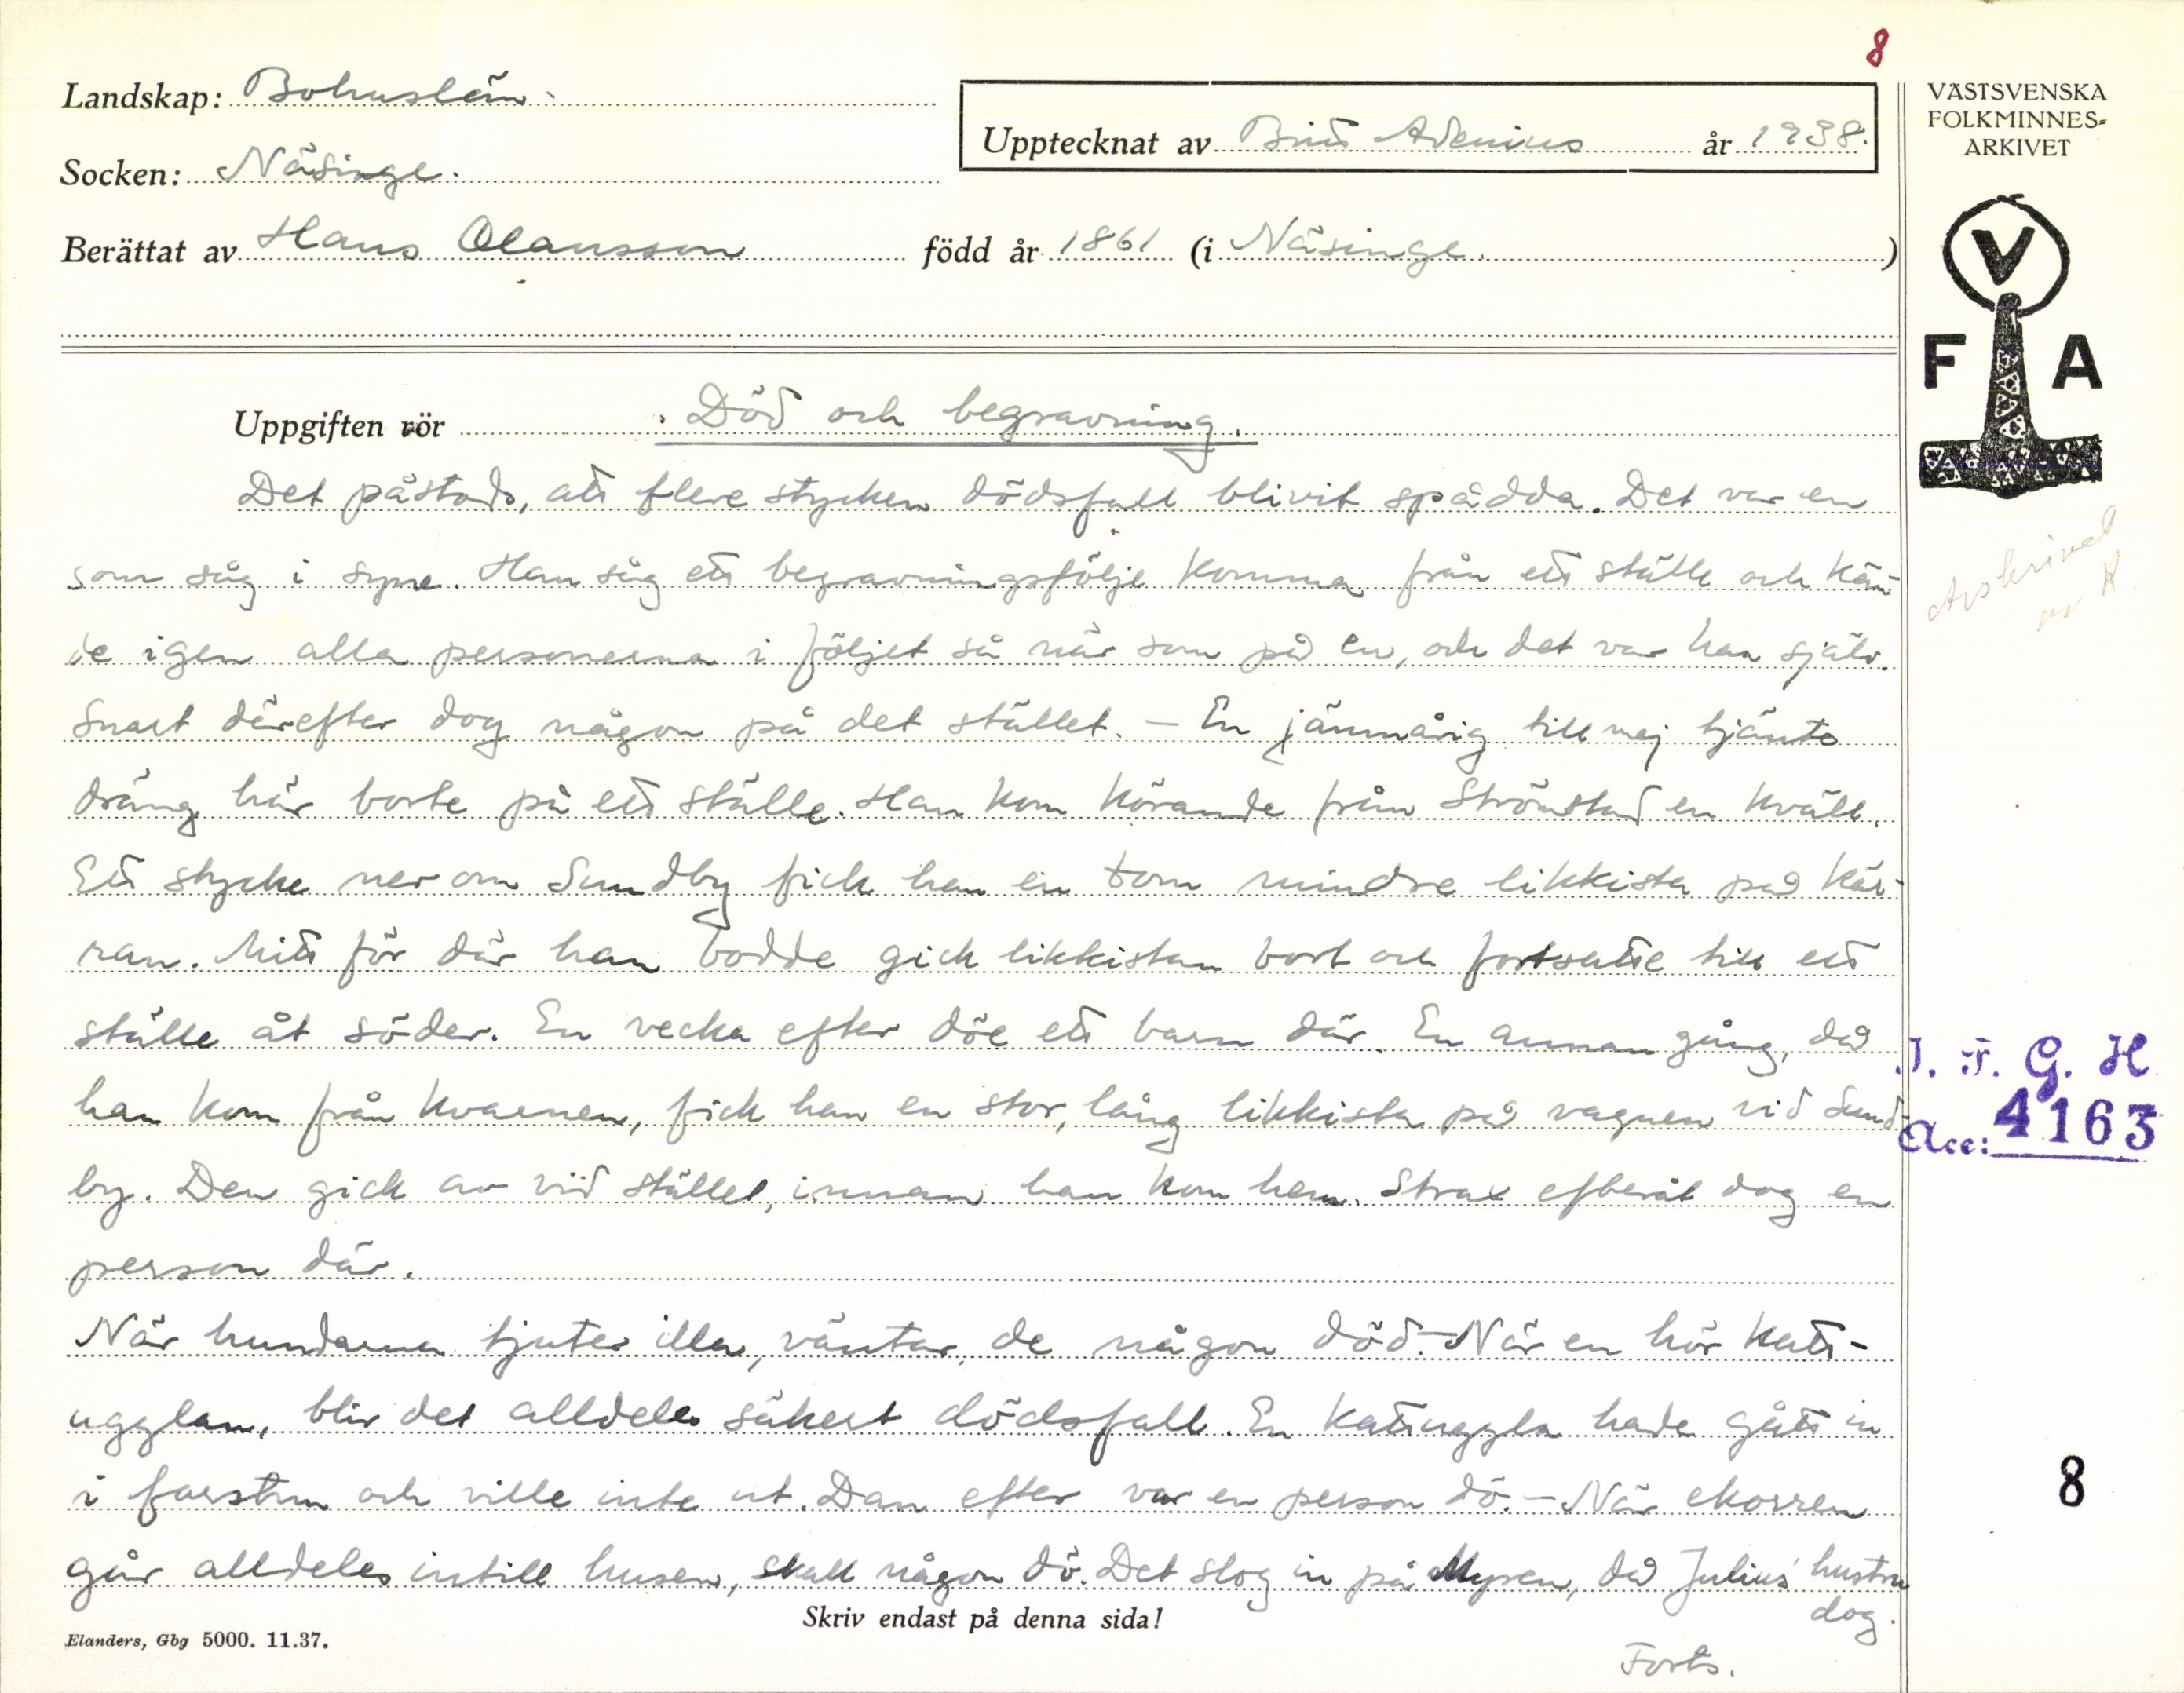 8
Landskap: Bohuslän.
Upptecknat av Britt Adenius år 1938.
Socken: Näsinge.
Berättat av Hans Olausson född år 1861 (i Näsinge.)
VÄSTSVENSKA
FOLKMINNES-
ARKIVET
V
F A
Uppgiften rör Död och begravning.
Det påstods, att flere stycken dödsfall blivit spådda. Det var en
som såg i syne. Han såg ett begravningsfölje komma från ett ställe och kän-
de igen alla personerna i följet så när som på en, och det var han själv.
Snart därefter dog någon på det stället. – En jämnårig till mej tjänte
dräng här borte på ett ställe. Han kom körande från Strömstad en kväll.
Ett stycke ner om Sundby fick han en tom mindre likkista på kär-
ran. Mitt för där han bodde gick likkistan bort och fortsatte till ett
ställe åt söder. En vecka efter döe ett barn där. En annan gång, då
han kom från kvarnen, fick han en stor, lång likkista på vagnen vid Sund-
by. Den gick av vid stället, innan han kom hem. Strax efteråt dog en
person där.
När hundarna tjuter illa, väntar de någon död. – När en hör katt-
ugglan, blir det alldeles säkert dödsfall. En kattuggla hade gått in
i farstun och ville inte ut. Dan efter var en person dö. – När ekorren
går alldeles intill husen, skall någon dö. Det slog in på Myren, då Julius' hustru
dog.
Forts.
Avskrivet
av K.
I. F. G. H
Acc: 4163
8
Skriv endast på denna sida!
Elanders, Gbg 5000. 11.37.